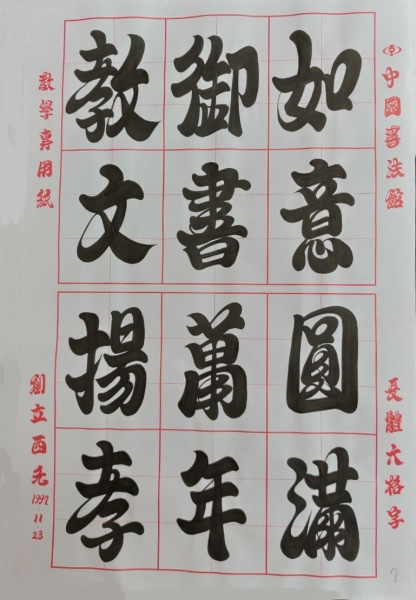 中國書法館
長體六格字
7
如意圓滿
御書萬年
教文揚孝
教學專用紙
創立西元1997.11.23